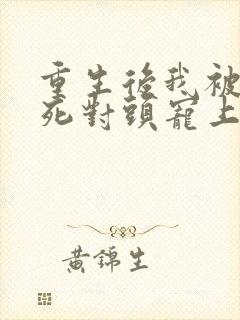 重生後我被
死對頭寵上
黃錦生